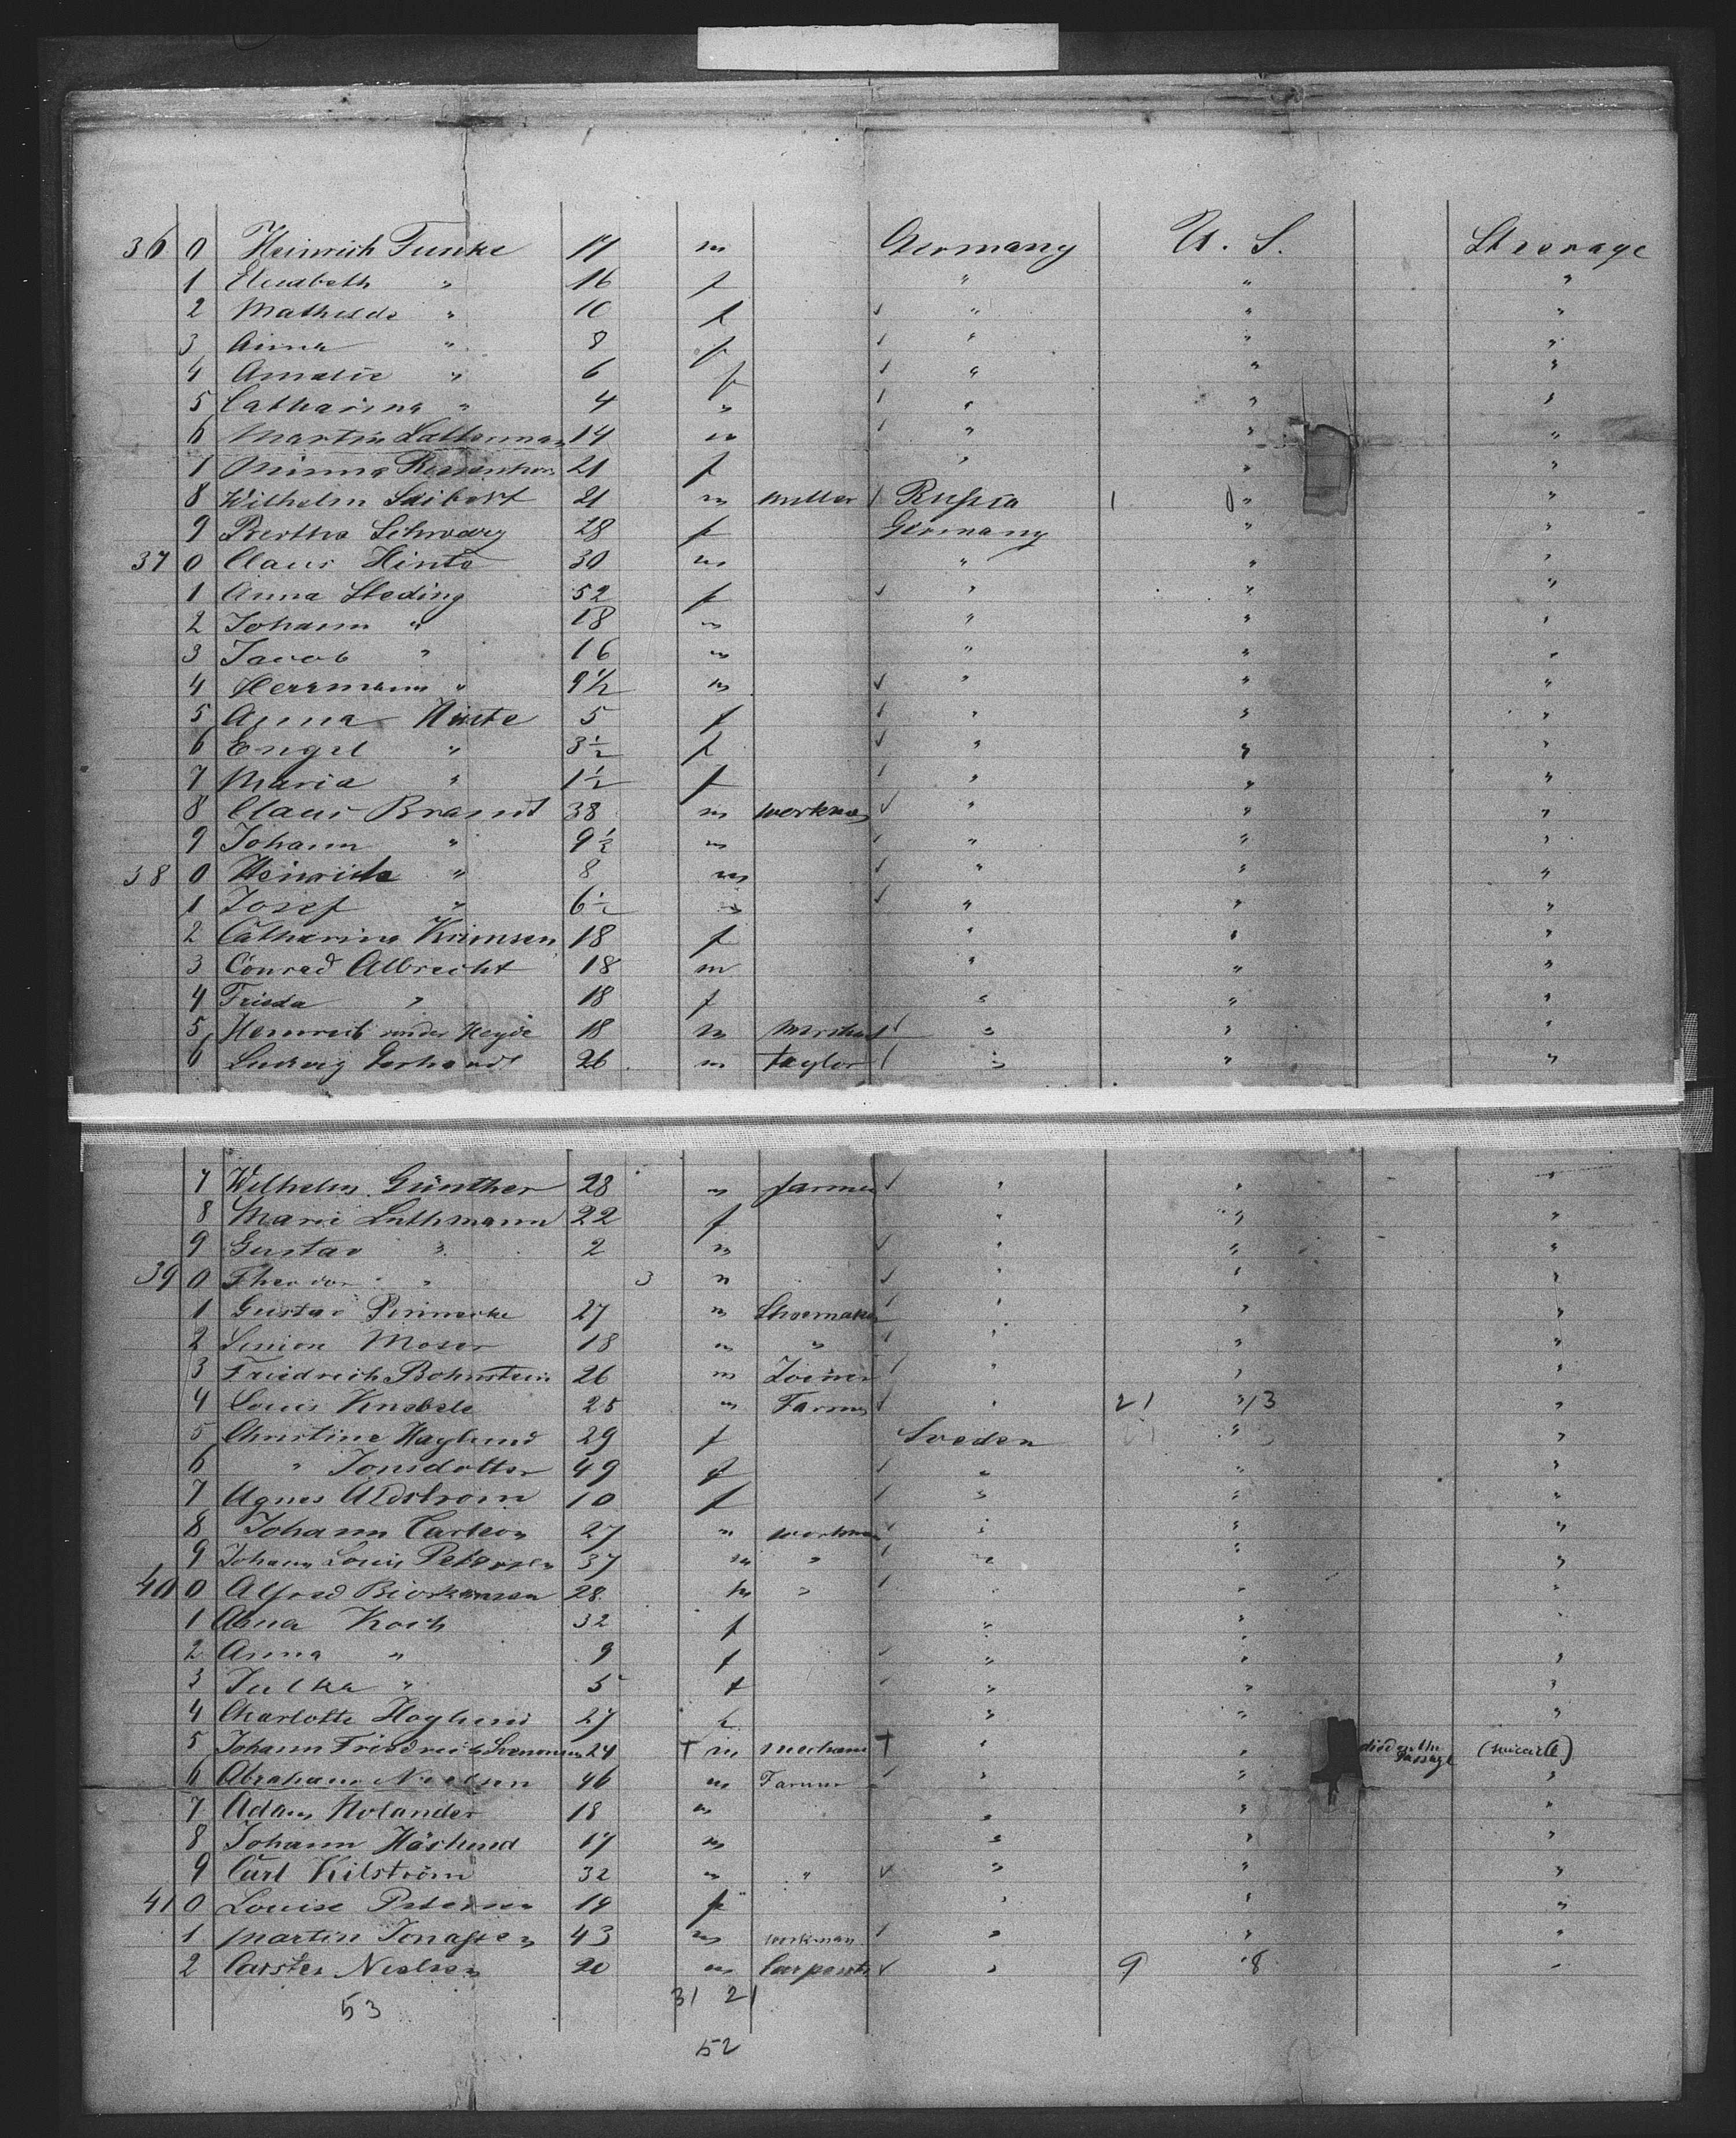 36 0 Heinrich Funke 17 m Germany U. S. Steerage
1 Elisabeth " 16 f " " "
2 Mathilde " 10 f " " "
3 Anna " 8 f " " "
4 Amalie " 6 f " " "
5 Catharina " 4 " " " "
6 Martin 14 m " " "
7 Minna 21 f " " "
8 Wilhelm Seibert 21 m miller Russia 1 " "
9 Bertha 28 f Germany " "
37 0 Claus Hinte 30 m " " "
1 Anna Steding 52 f " " "
2 Johann " 18 m " " "
3 Jacob " 16 m " " "
4 Herrmann " 9½ m " " "
5 Anna Hinte 5 f " " "
6 Engel " 3½ f " " "
7 Maria " 1½ f " " "
8 Claus Brandt 38 m workman " " "
9 Johann " 9½ m " " "
38 0 Heinrich " 8 m " " "
1 Josef " 6½ " " " "
2 Catharina Krimsen 18 f " " "
3 Conrad Albrecht 18 m " " "
4 Frieda " 18 f " " "
5 Heinrich von der Heyde 18 m " " "
6 Ludwig Gerhardt 26 m taylor " " "
7 Wilhelm Günther 28 m farmer " " "
8 Marie Luthmann 22 f " " "
9 Gustav " 2 m " " "
39 0 Theodor " 3 m " " "
1 Gustav 27 m Shoemaker " " "
2 Simon Moser 18 m " " " "
3 Friedrich Bohnstein 26 m Joiner " " "
4 Louis Knebele 25 m Farmer " 21 " 13 "
5 Christine Haglund 29 f Sveden " "
6 " Jonsdotter 49 f " " "
7 Agnes Aldstrom 10 f " " "
8 Johann Carlson 27 m workman " " "
9 Johann Louis Peterssen 37 m " " " "
40 0 Alfred 28 m " " " "
1 Anna Koch 32 f " "
2 Anna " 9 f " " "
3 Julka " 5 f " " "
4 Charlotte Hoglund 27 f " " "
5 Johann Friedrich 24 † m mechanic † " " died on the passage (suicide)
6 Abraham Nielsen 46 m Farmer " " "
7 Adam Nolander 18 m " " "
8 Johann Häslund 17 m " " "
9 Carl Kilström 32 m " " " "
41 0 Louise Petersen 19 f " " "
1 Martin Jonassen 43 m workman " " "
2 Carsten Nielsen 20 m Carpenter " 9 " 8 "
53 31 21
52